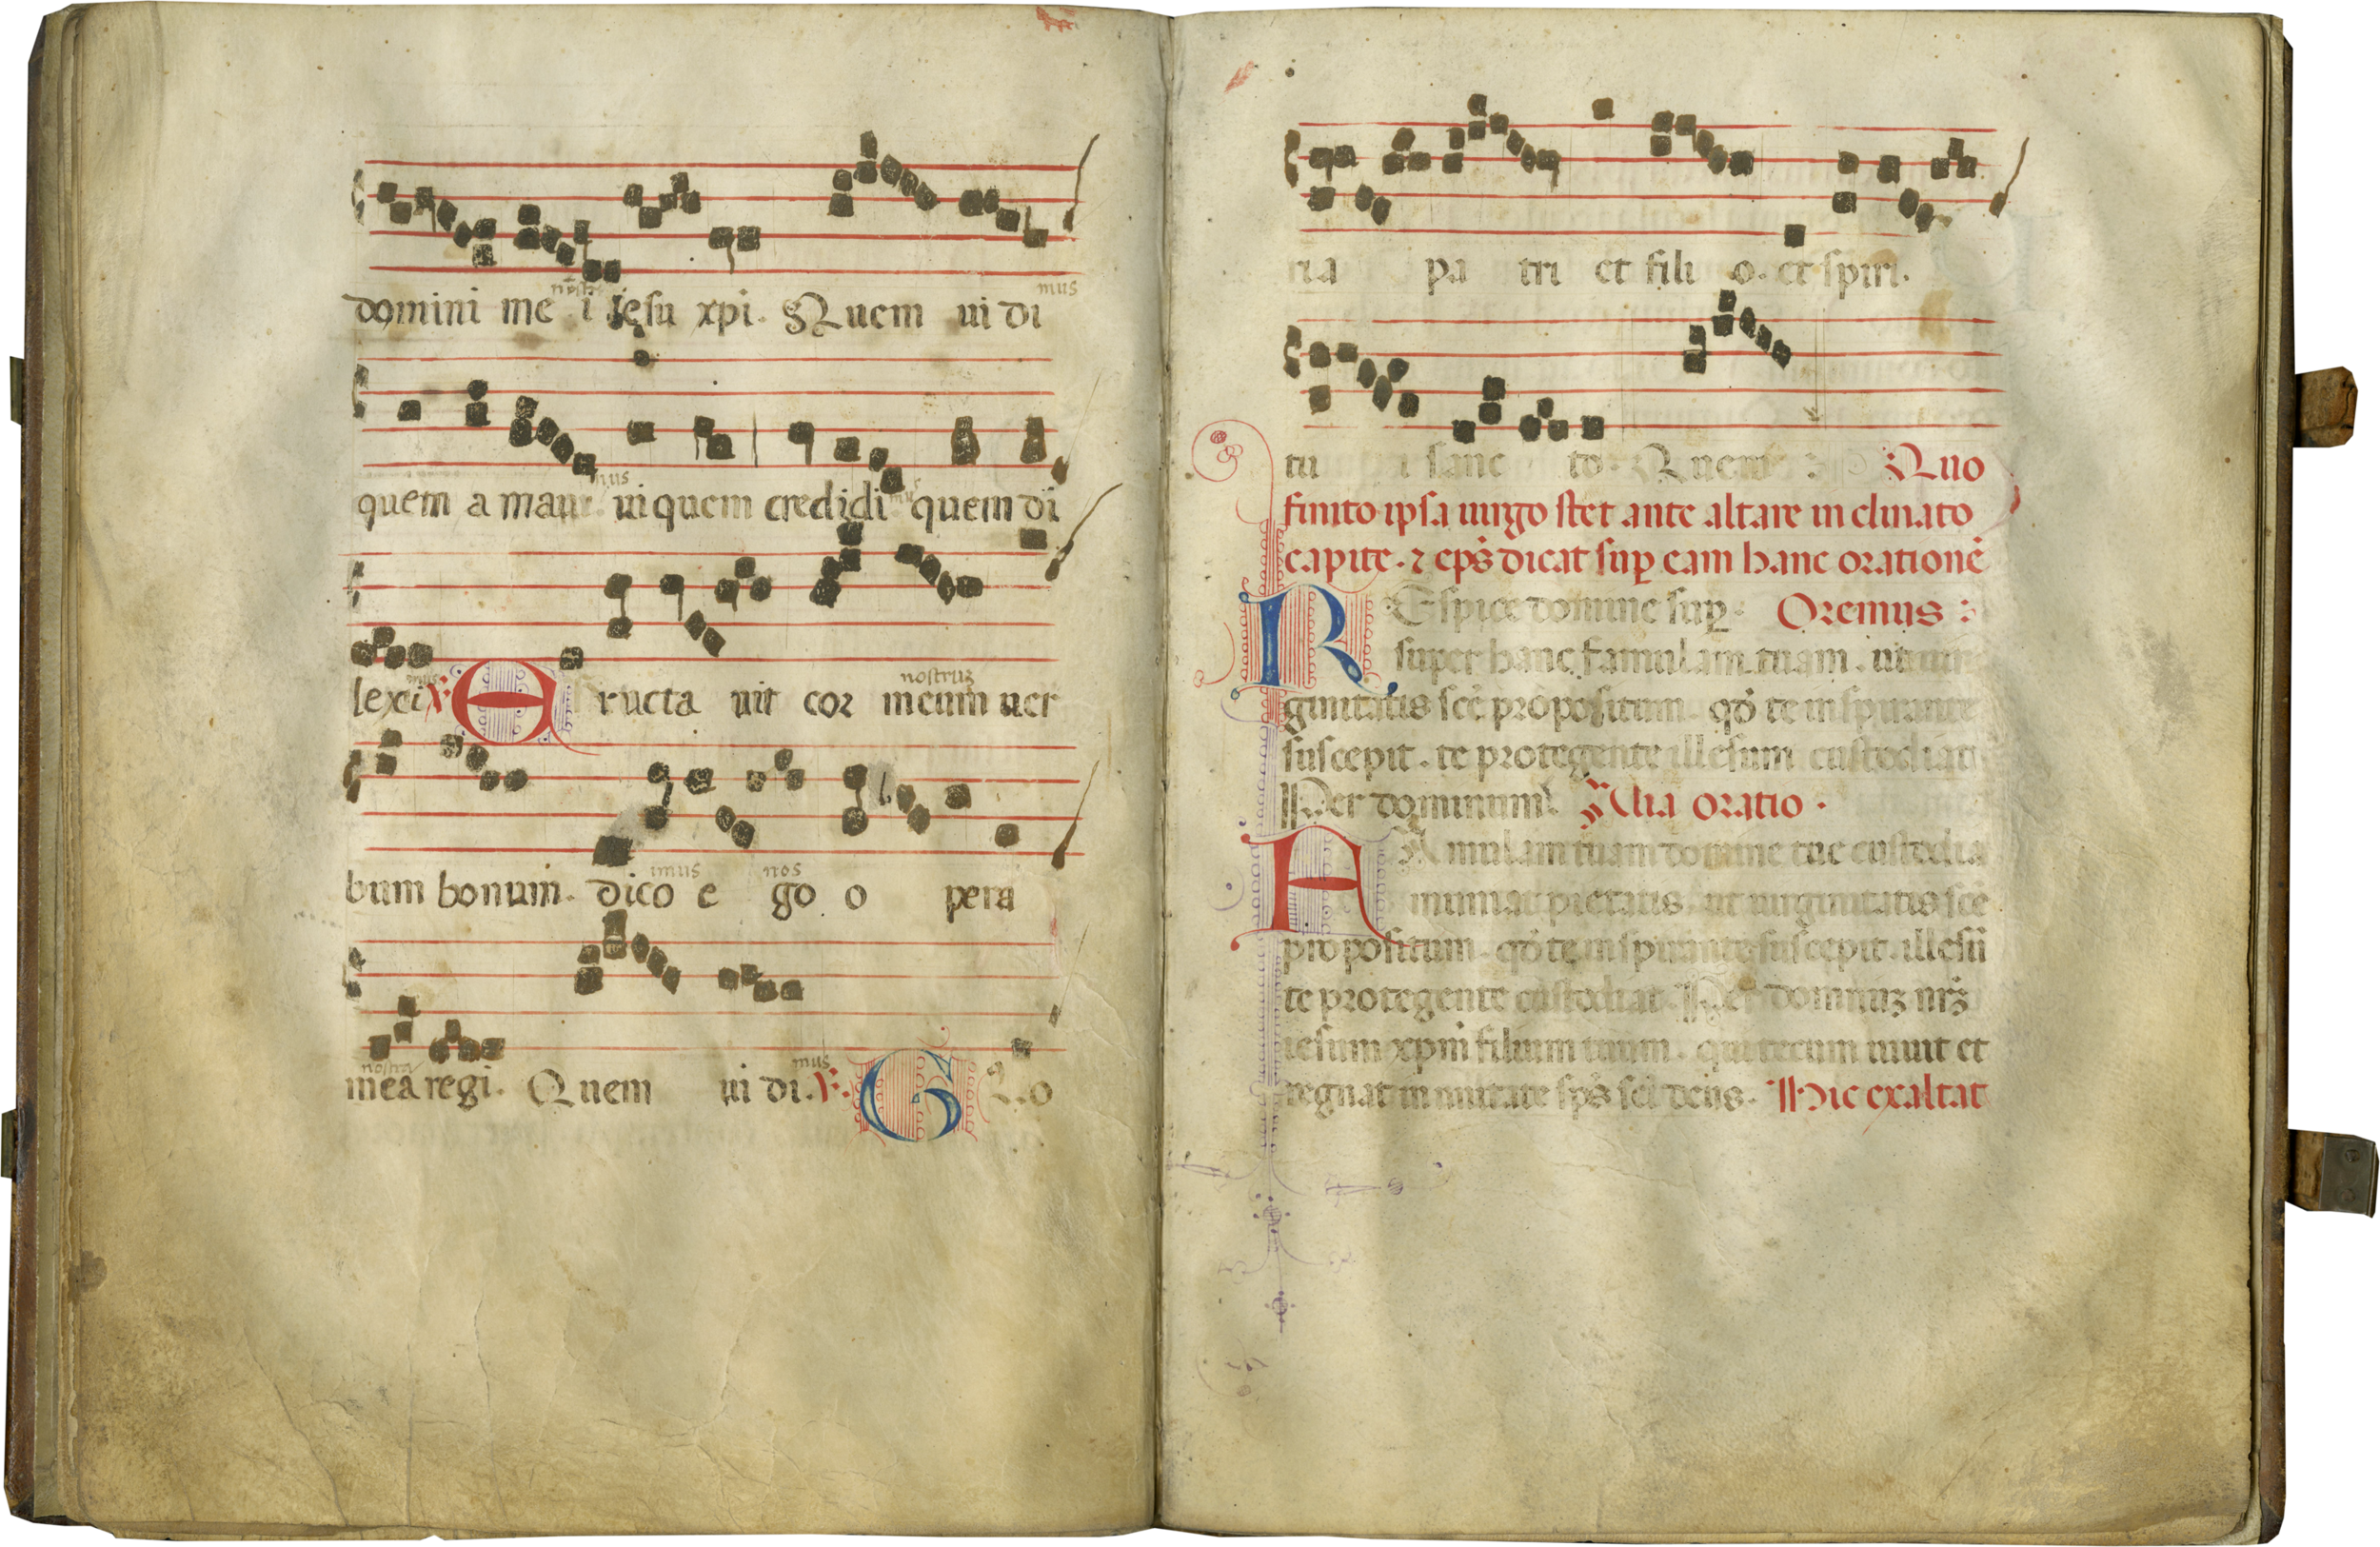 nostri mus
domini me i iesu xpi. Quem ui di
mus
quem a maui. ui quem credidi quem di
mus nostrum
lexi ℣. E ructa uit cor meum uer
imus nos
bum bonum. dico e go o pera
nostra mus
mea regi. Quem ui di. ℣. G L o
ria pa tri et fili o. et spiri.
tu i sanc to. Quem : Quo
finito ipsa uirgo stet ante altare inclinato
capite. ⁊ eps dicat sup eam hanc orationē
REspice domine sup. Oremus :
super hanc famulam tuam. ut uir
ginitatis scē propositum. qd̄ te inspirante
suscepit. te protegente illesum custodiat
Per dominum. Alia oratio.
FAmulam tuam domine tue custodia
muniat pietatis ut uirginitatis scē
propositum. qd̄ te inspirante suscepit. illesū
te protegente custodiat. Per dominuꝫ nr̄ꝫ
iesum xpm̄ filium tuum. qui tecum uiuit et
regnat in unitate sp̄s sc̄i deus. Hic exaltat